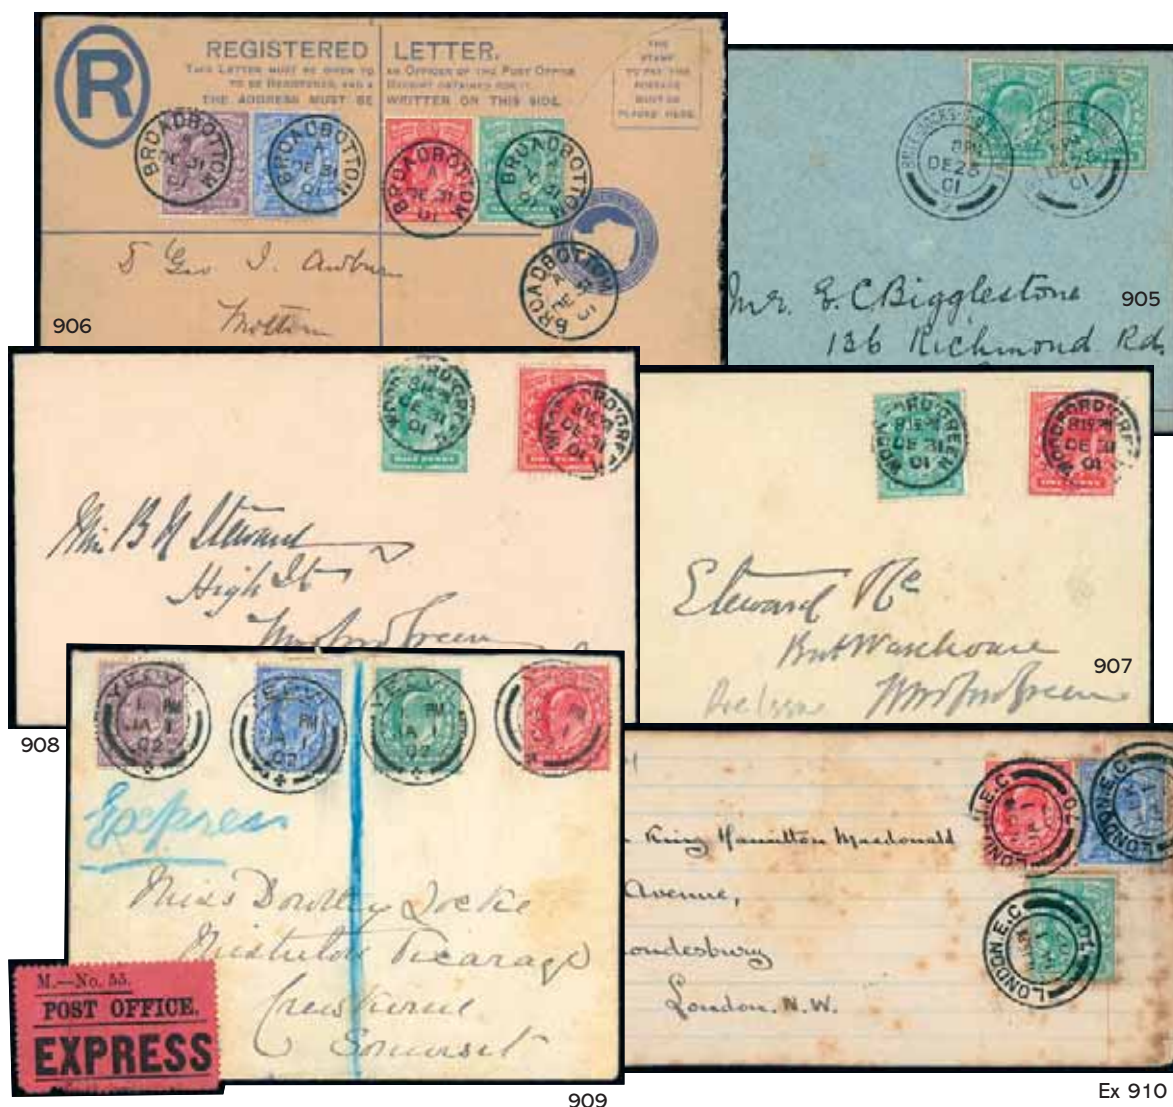 REGISTERED LETTER.
THIS LETTER MUST BE GIVEN TO AN OFFICER OF THE POST OFFICE
TO BE REGISTERED, AND A RECEIPT OBTAINED FOR IT.
THE ADDRESS MUST BE WRITTEN ON THIS SIDE.
R
THE
STAMP
TO PAY THE
POSTAGE
MUST BE
PLACED HERE.
BROADBOTTOM
A
DE 31
01
BROADBOTTOM
A
DE 31
01
BROADBOTTOM
A
DE 31
01
BROADBOTTOM
A
DE 31
01
BROADBOTTOM
A
DE 31
01
906
8 PM
01
01
Mr. E. C. Bigglestone
136 Richmond Rd.
905
WOODFORD GREEN
DE 31
01
DE 31
01
High St
908
WOODFORD GREEN
8 15 PM
DE 31
01
8 15 PM
DE 31
01
Steward
Warehouse
Woodford Green
907
1 PM
JA 1
02
PM
JA 1
02
PM
JA 1
02
Express
Miss Dorothy Locke
Vicarage
Crewkerne
Somerset
M.—No. 55.
POST OFFICE.
EXPRESS
909
LONDON. E.C.
LONDON. E.C.
LONDON. E.C.
King Hamilton Macdonald
Avenue,
ondesbury
London. N.W.
Ex 910